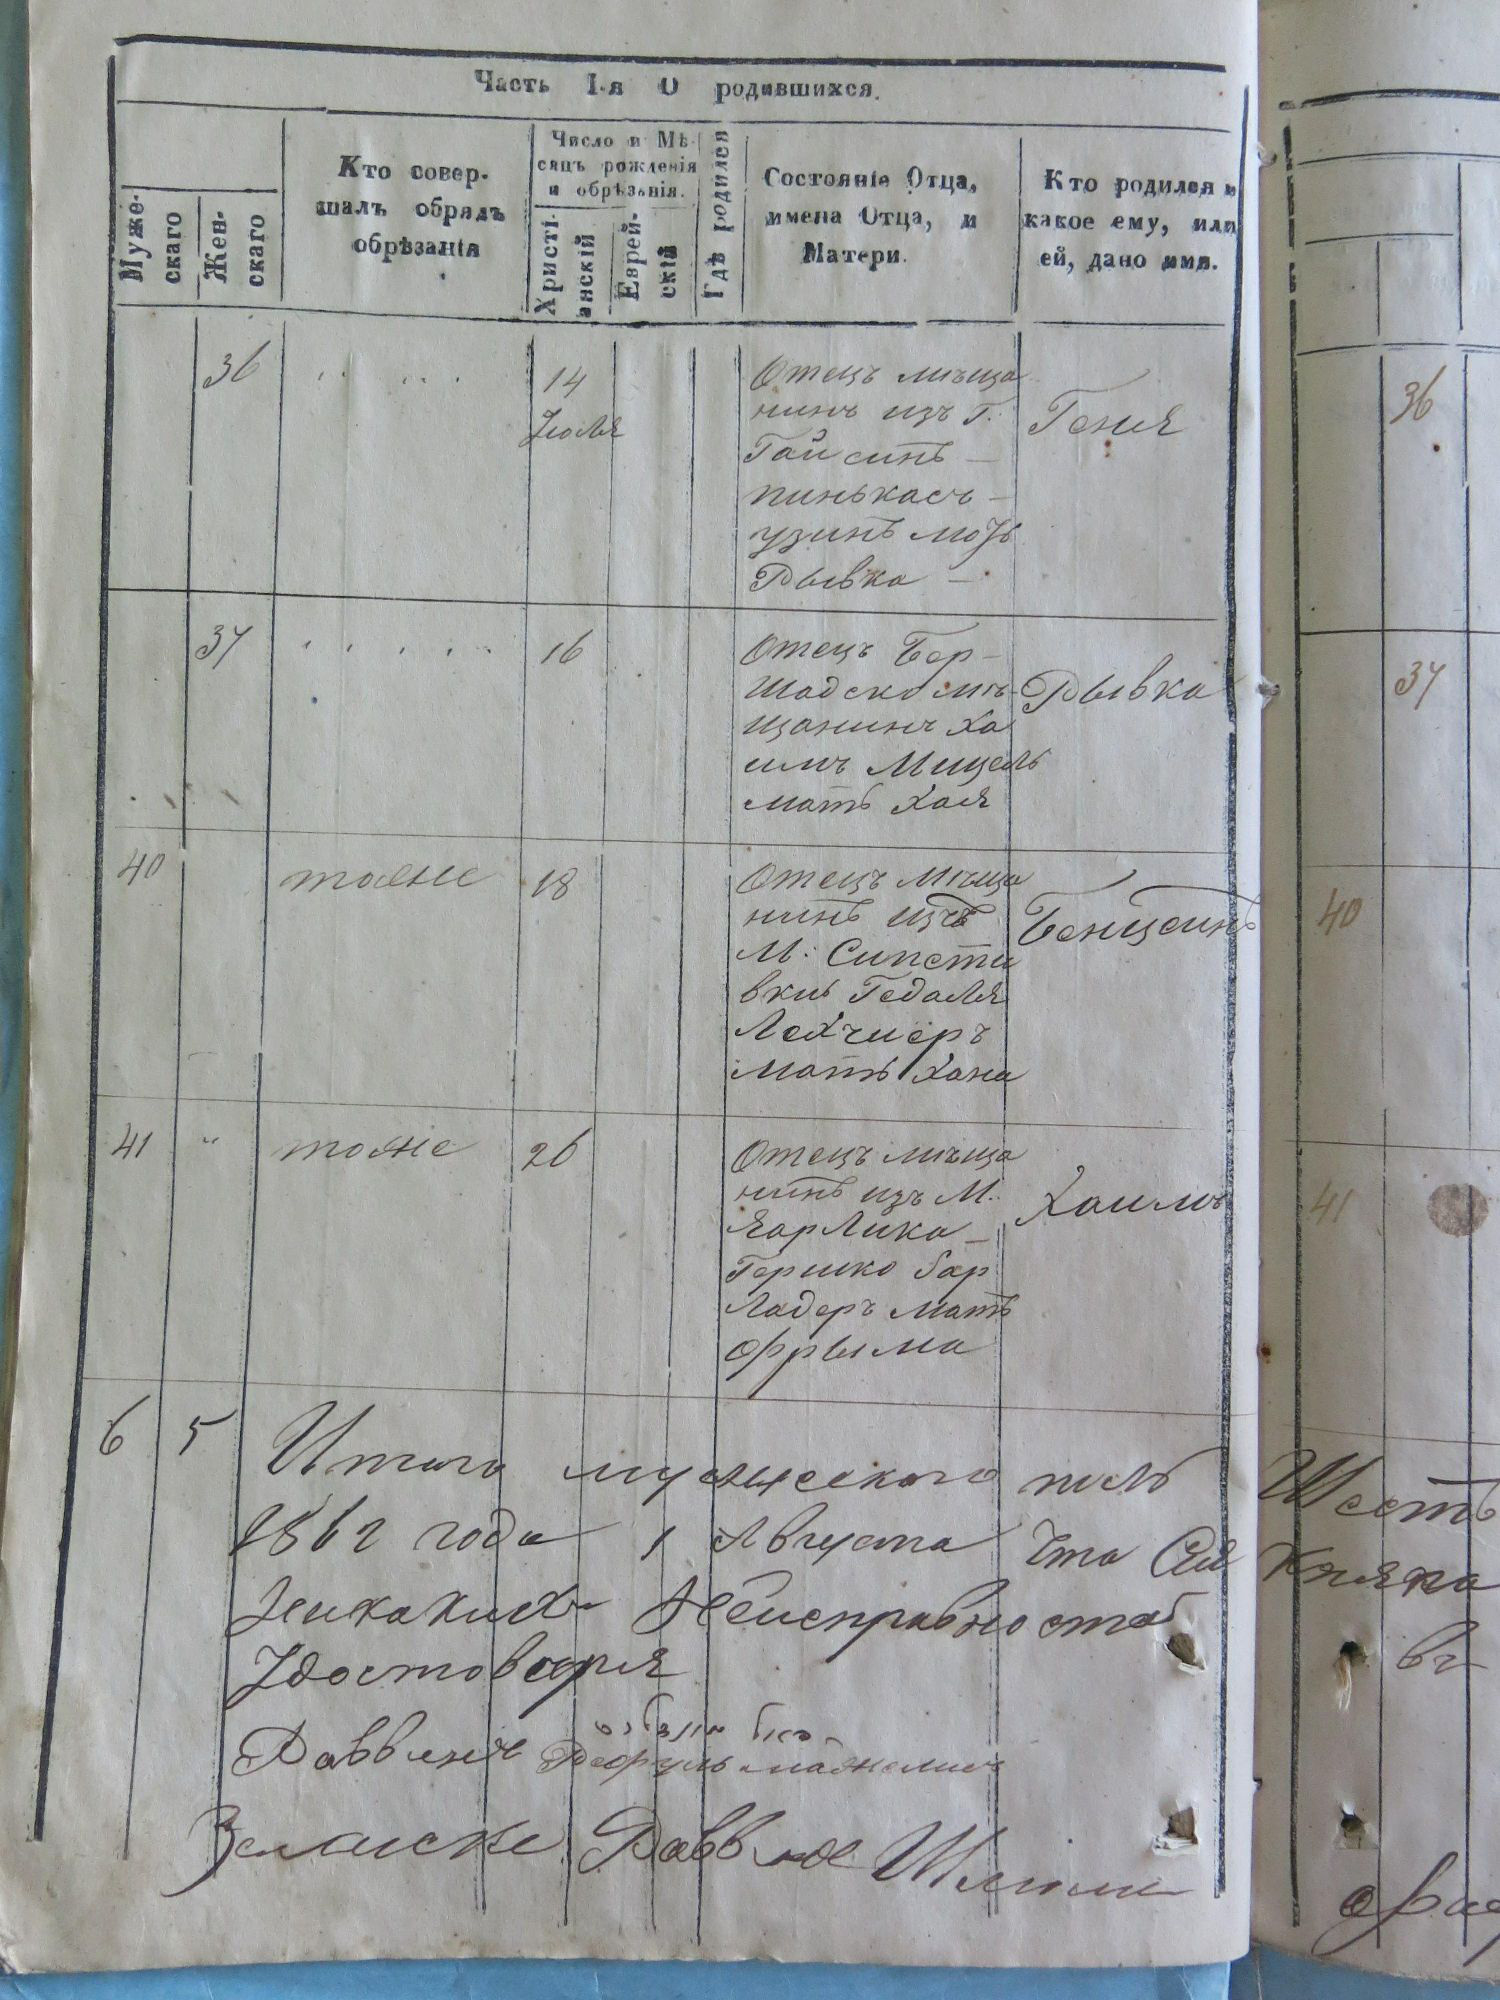 Часть I-я О родившихся.
Муже-
скаго
Жен-
скаго
Кто совер-
шалъ обрядъ
обрѣзанія
Число и Мѣ-
сяцъ рожденія
и обрѣзанія.
Христі-
анскій
Еврей-
скій
Гдѣ родился
Состояніе Отца,
имена Отца, и
Матери.
Кто родился и
какое ему, или
ей, дано имя.
36
14
Іюля
Отецъ мѣща
нинъ изъ Г.
Гайсинъ —
пинькасъ —
узинъ мать
Рывка —
Геня
37
16
Отецъ Бер-
шадско мѣ-
щанинъ Ха
имъ Мицель
мать Хая
Рывка
40
тоже
18
Отецъ мѣща
нинъ изъ
М: Сипсти
вки Гедаля
Лехчиеръ
мать Хана
Бенцеинъ
41 "
тоже
26
Отецъ мѣща
нинъ изъ М.
Ярлика —
Гершко бар
ладеръ мать
Фрыма
Хаимъ
6 5
Итого мужескаго полъ
1861 года 1 Августа Что Сія
Никакихъ Неисправностей
Удостоверя
Раввинъ
Раввине Шмили
36
37
40
41
Шесть
Книга
въ